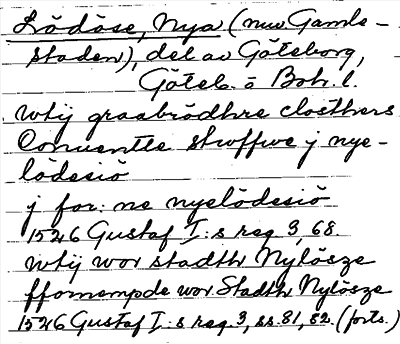 Lödöse, Nya (nuv. Gamle-
staden), del av Göteborg,
Göteb. o Boh. l.
wtij graabrödhre closthers
Conuentte stwffwe j nye-
lödesiö
j for: ne nyelödesiö
1526 Gustaf I:s reg 3, 68.
wtij wor stadth Nylösze
ffornempde wor Stadth Nylösze
1526 Gustaf I:s reg. 3, ss. 81, 82. (forts.)